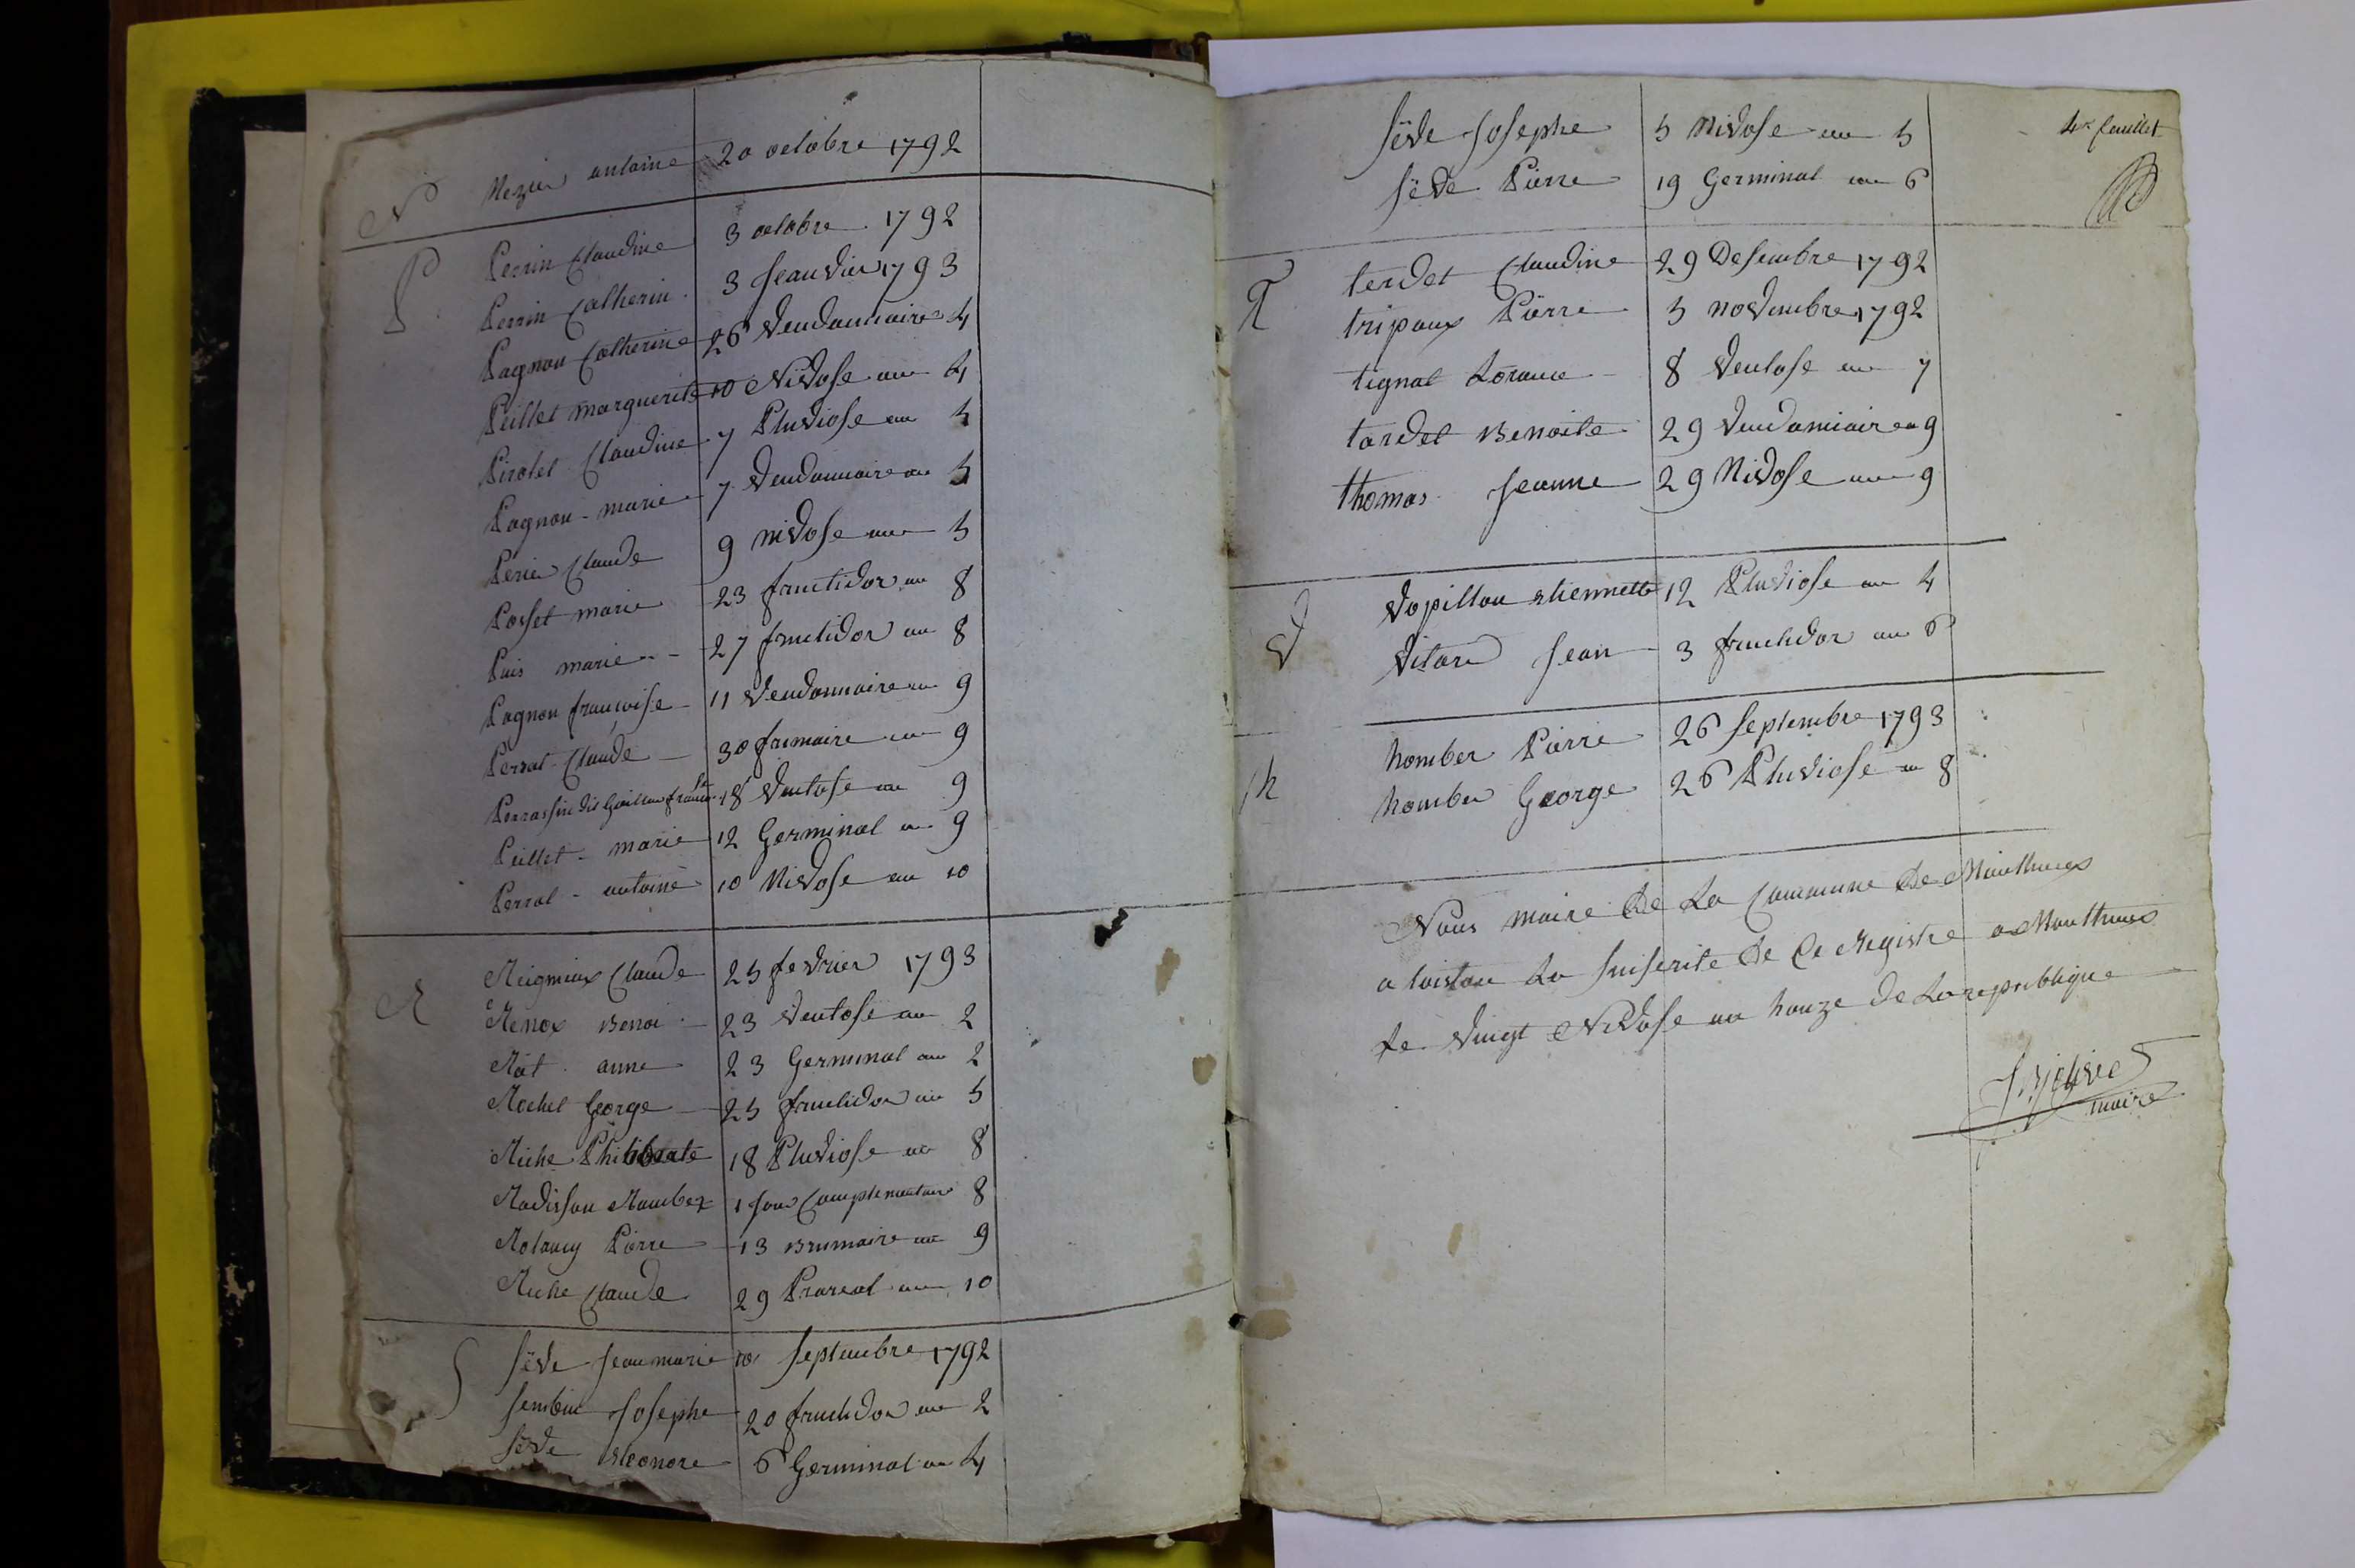 N Nezier antoine 20 octobre 1792
P Perrin Claudine 3 octobre 1792
Perrin Catherin 3 Jeanvier 1793
Pagnon Catherine 26 Vendanniaire 4
Peillet marguerite 10 Nivose an 4
Pirolet Claudine 7 Pluviose an 4
Pagnon marie 7 Vendanniaire an 5
Perier Claude 9 nivose an 5
Posset marie 23 fructidor an 8
Puis marie 27 fructidor an 8
Pagnon françoise 11 Vendanniaire an 9
Perrat Claude 30 frimaire an 9
Perrassin dit 18 Ventose an 9
Peillet marie 12 Germinal an 9
Perrat antoine 10 Nivose an 10
R Claude 25 fevrier 1793
Renox Benoi 23 Ventose an 2
Rat anne 23 Germinal an 2
Rochet George 25 fructidor an 5
Riche Philiberte 18 Pluviose an 8
Radisson 1 Jour Complementaire 8
Pierre 13 Brumaire an 9
Riche Claude 29 Prareal an 10
S Sève Jeanmarie 10 Septembre 1792
Josephe 20 fructidor an 2
Sève Eleonore 6 Germinal an 4
4e feuillet
Sève Josephe 5 Nivose an 5
Sève Pierre 19 Germinal an 6
T terdet Claudine 29 Desembre 1792
tripoux Pierre 5 novembre 1792
tignat Lorance 8 Ventose an 7
tardet Benoite 29 Vendamiaire an 9
thomas Jeanne 29 Nivose an 9
V Vopillon etiennette 12 Pluviose an 4
Vitard Jean 3 fructidor an 6
h homber Pierre 26 Septembre 1793
homber George 26 Pluviose an 8
Nous maire de La Commune de
a La de Ce Registre a
Le Vingt Nivose an honze de La republique
maire